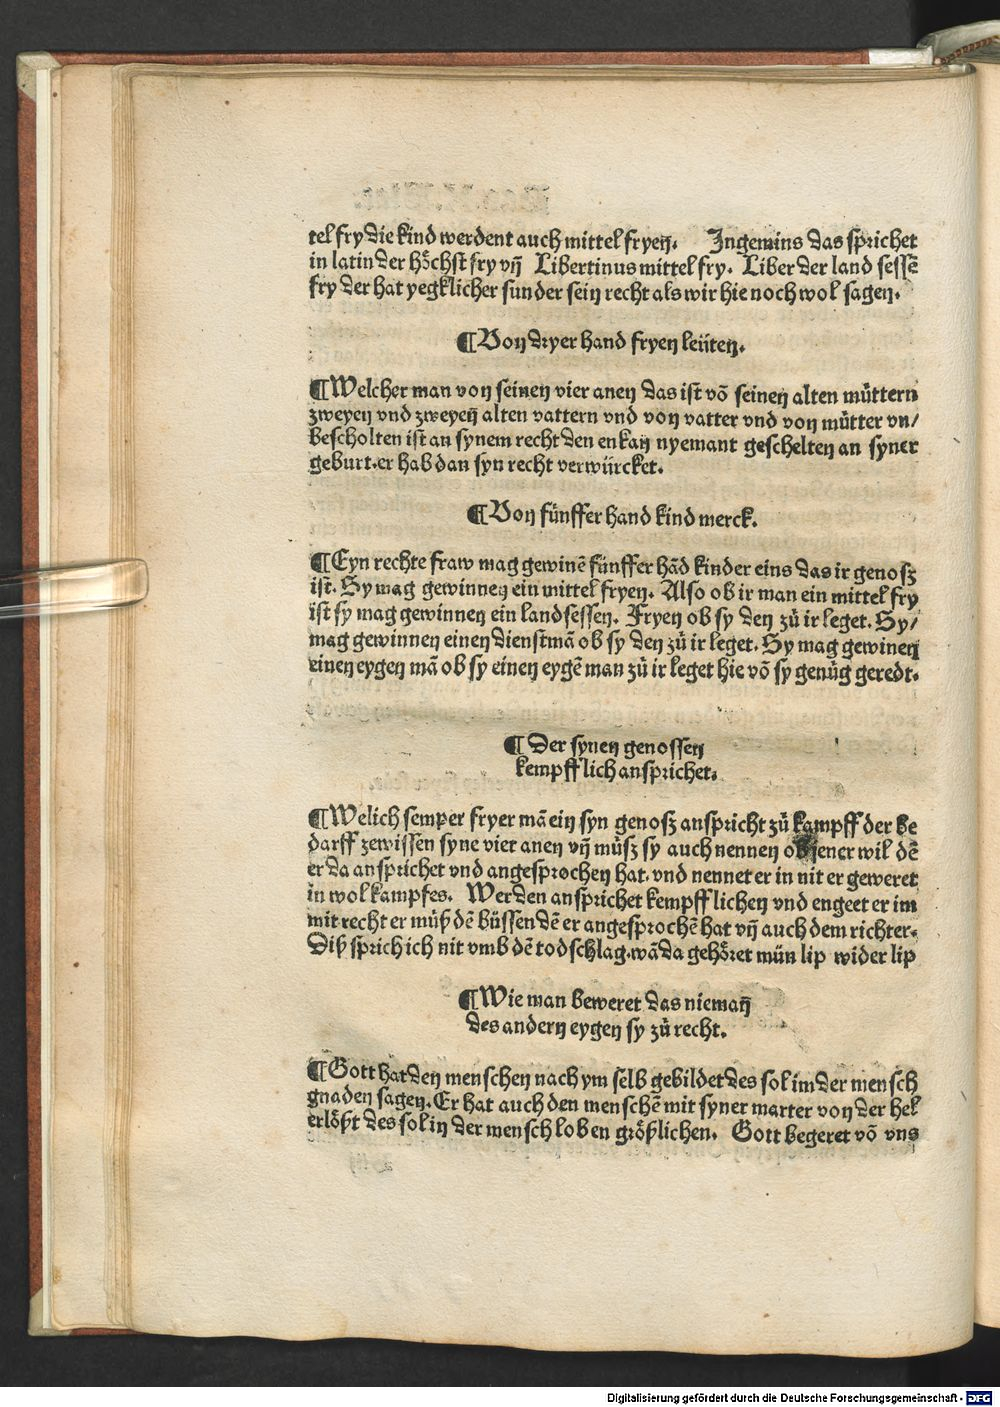 tel fry die kind werdent auch mittel fryen. Ingemins das sprichet
in latin der höchst fry vn̄ Libertinus mittel fry. Liber der land sessē
fry der hat yegklicher sunder sein recht als wir hie noch wol sagen.
¶ Von dryer hand fryen leüten.
¶ Welcher man von seinen vier anen das ist vō seinen alten müttern
zweyen vnd zweyen alten vattern vnd von vatter vnd von mütter vn/
bescholten ist an synem recht den enkan nyemant geschelten an syner
geburt. er hab dan syn recht verwürcket.
¶ Von fünffer hand kind merck.
¶ Eyn rechte fraw mag gewinē fünffer hād kinder eins das ir genosz
ist. Sy mag gewinnen ein mittel fryen. Also ob ir man ein mittel fry
ist sy mag gewinnen ein landsessen. Fryen ob sy den zů ir leget. Sy/
mag gewinnen einen dienstmā ob sy den zů ir leget. Sy mag gewinen
einen eygen mā ob sy einen eygē man zů ir leget hie vō sy genůg geredt.
¶ Der synen genossen
kempfflich ansprichet.
¶ Welich semper fryer mā ein syn genosz anspricht zů kampff der be
darff zewissen syne vier anen vn̄ můsz sy auch nennen ob jener wil dē
er da ansprichet vnd angesprochen hat. vnd nennet er in nit er geweret
in wol kampfes. Wer den ansprichet kempfflichen vnd engeet er im
mit recht er můß dē büssen dē er angesprochē hat vn̄ auch dem richter.
Diß sprich ich nit vmb dē todschlag. wā da gehöret mün lip wider lip
¶ Wie man beweret das nieman̄
des andern eygen sy zů recht.
¶ Gott hat den menschen nach ym selb gebildet des sol im der mensch
gnaden sagen. Er hat auch den menschē mit syner marter von der hel
erlößt des sol in der mensch loben größlichen. Gott begeret vō vns
Digitalisierung gefördert durch die Deutsche Forschungsgemeinschaft - DFG